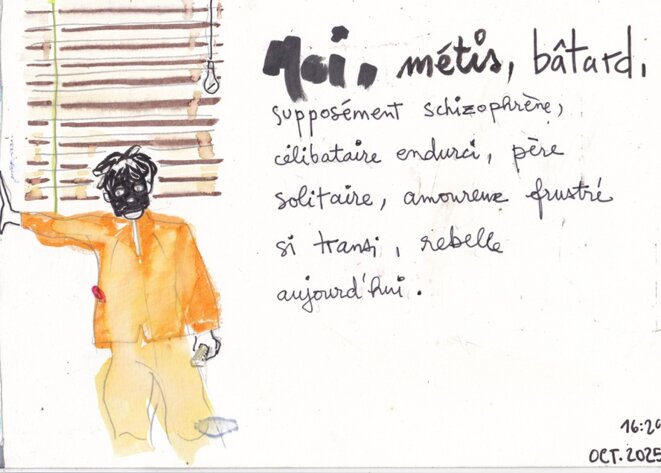 Moi, métis, bâtard,
supposément schizophrène,
célibataire endurci, père
solitaire, amoureux frustré
si transi, rebelle
aujourd'hui.
16:29
OCT. 2025